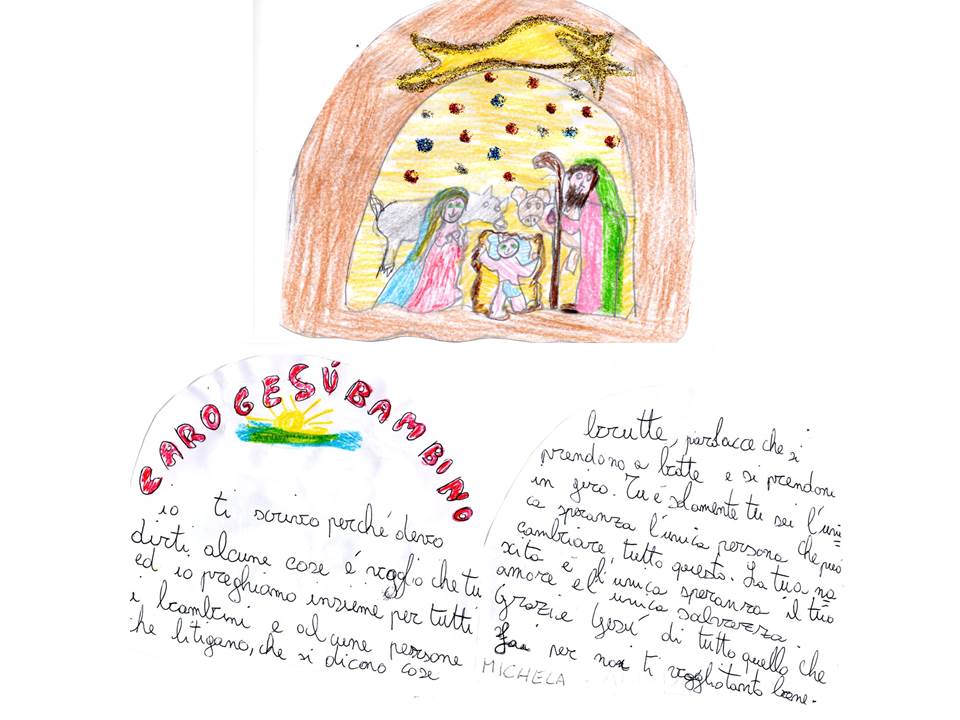 CARO GESÚ BAMBINO
io ti scrivo perché devo
dirti alcune cose é voglio che tu
ed io preghiamo insieme per tutti
i bambini e alcune persone
che litigano, che si dicono cose
brutte, parolacce che si
prendono a botte e si prendono
in giro. Tu é solamente tu sei l'uni=
ca speranza l'unica persona che può
cambiare tutto questo. La tua na=
scita é l'unica speranza il tuo
amore é l'unica salvezza.
Grazie Gesú di tutto quello che
fai per noi ti voglio tanto bene.
MICHELA